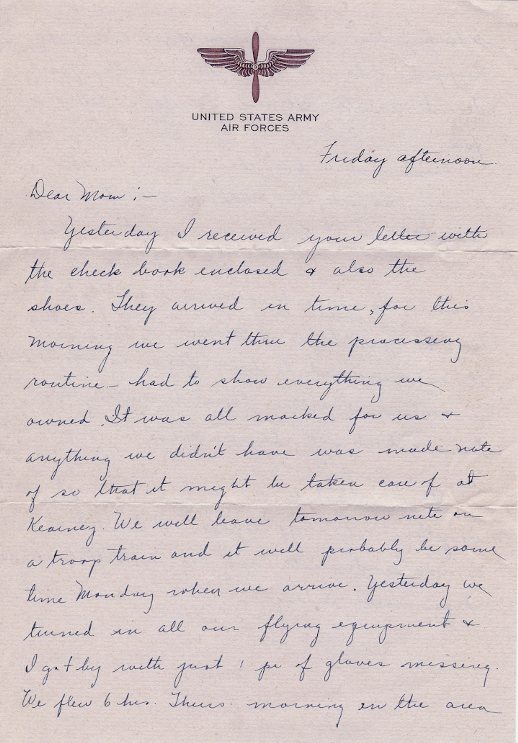 UNITED STATES ARMY
AIR FORCES
Friday afternoon.
Dear Mom :-
Yesterday I received your letter with
the check book enclosed & also the
shoes. They arrived in time, for this
morning we went thru the processing
routine - had to show everything we
owned. It was all marked for us &
anything we didn't have was made note
of so that it might be taken care of at
Kearney. We will leave tomorrow nite on
a troop train and it will probably be some
time Monday when we arrive. Yesterday we
turned in all our flying equipment &
I got by with just 1 pr of gloves missing.
We flew 6 hrs. Thurs. morning in the area